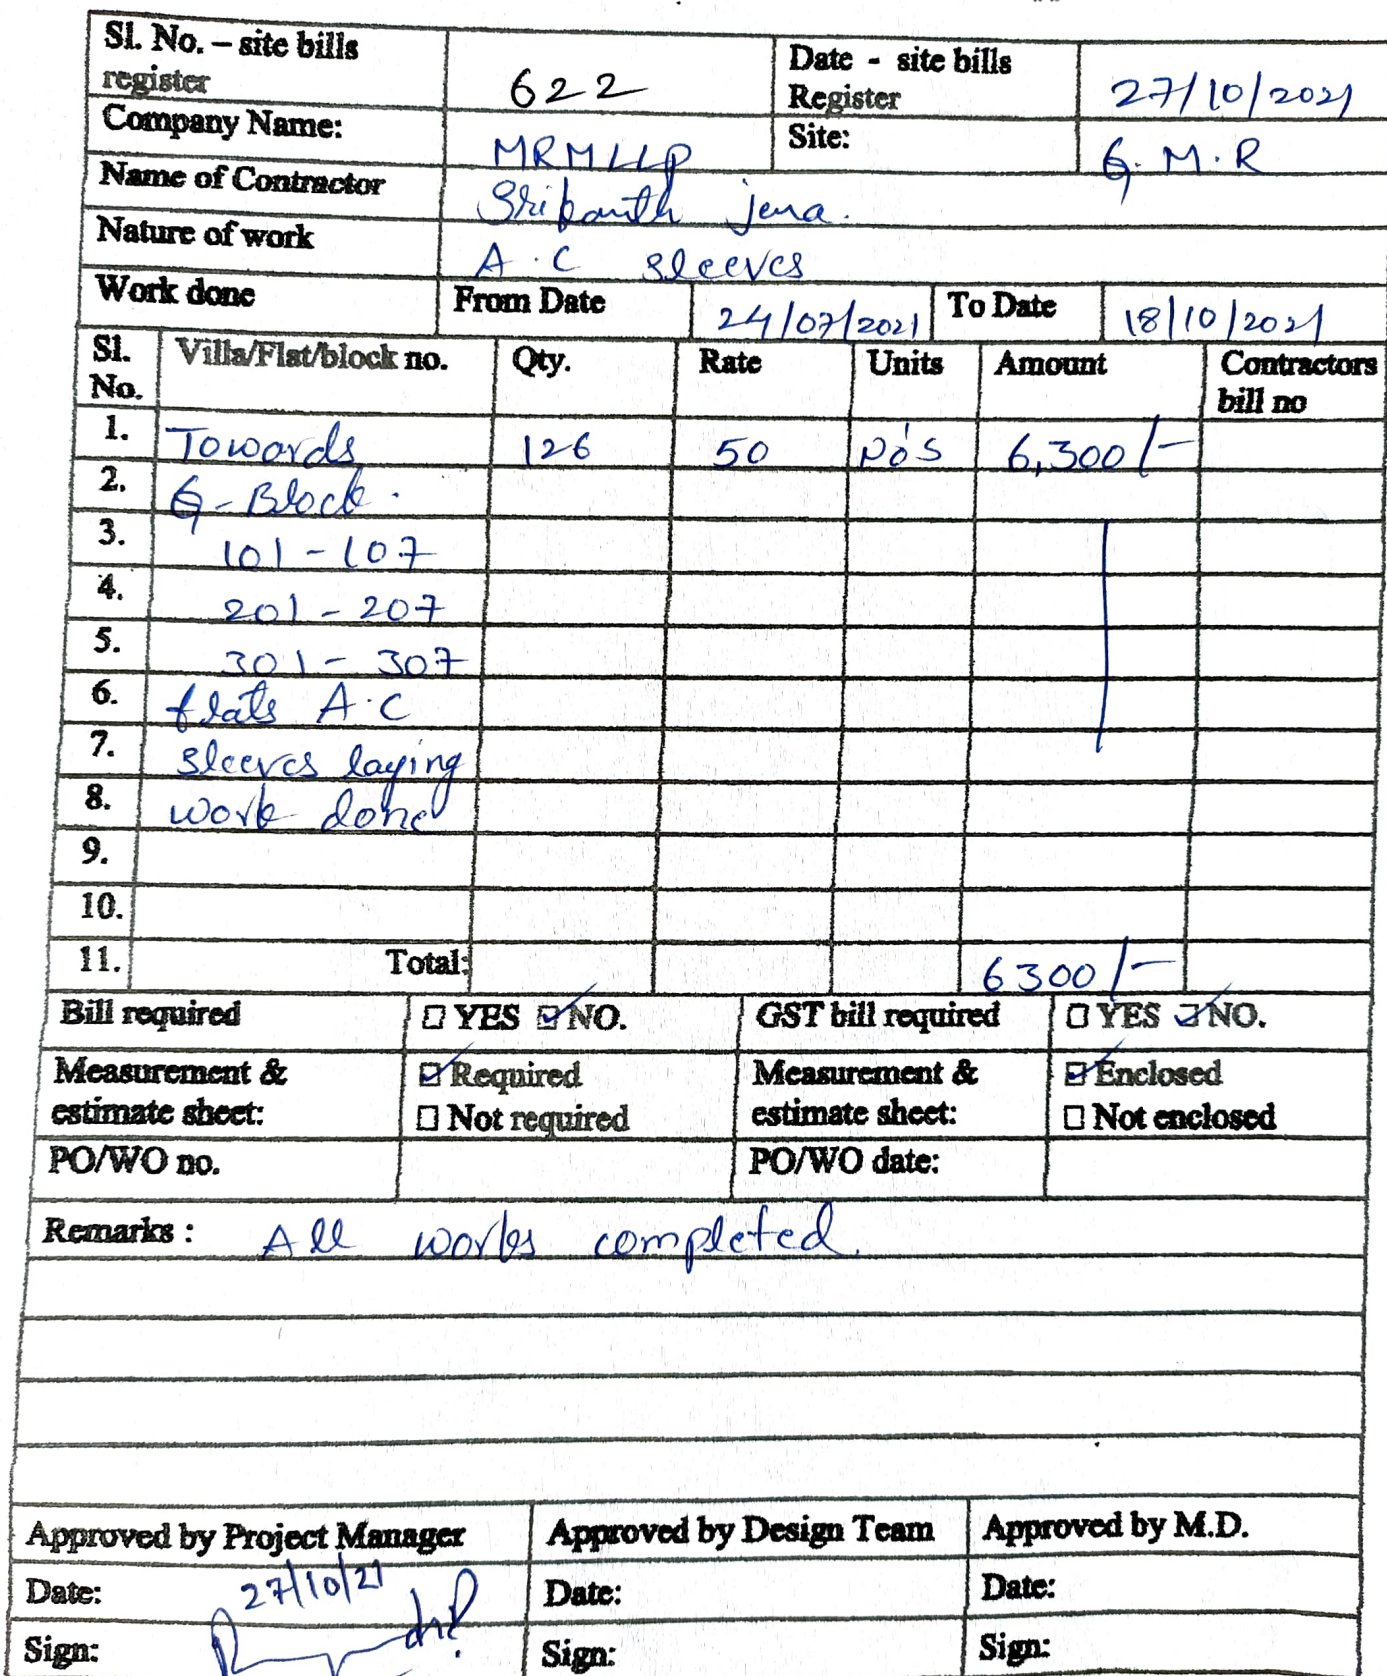 Sl. No. – site bills register 622 Date - site bills Register 27/10/2021
Company Name: MRMLLP Site: G.M.R
Name of Contractor Srikanth jena.
Nature of work A.C sleeves
Work done From Date 24/07/2021 To Date 18/10/2021
Sl. No. Villa/Flat/block no. Qty. Rate Units Amount Contractors bill no
1. Towards 126 50 No's 6,300/-
2. G-Block.
3. 101-107
4. 201-207
5. 301-307
6. flats A.C
7. sleeves laying
8. work done
9.
10.
11. Total: 6300/-
Bill required YES NO. GST bill required YES NO.
Measurement & estimate sheet: Required Not required Measurement & estimate sheet: Enclosed Not enclosed
PO/WO no. PO/WO date:
Remarks : All works completed.
Approved by Project Manager Approved by Design Team Approved by M.D.
Date: 27/10/21 Date: Date:
Sign: Sign: Sign: